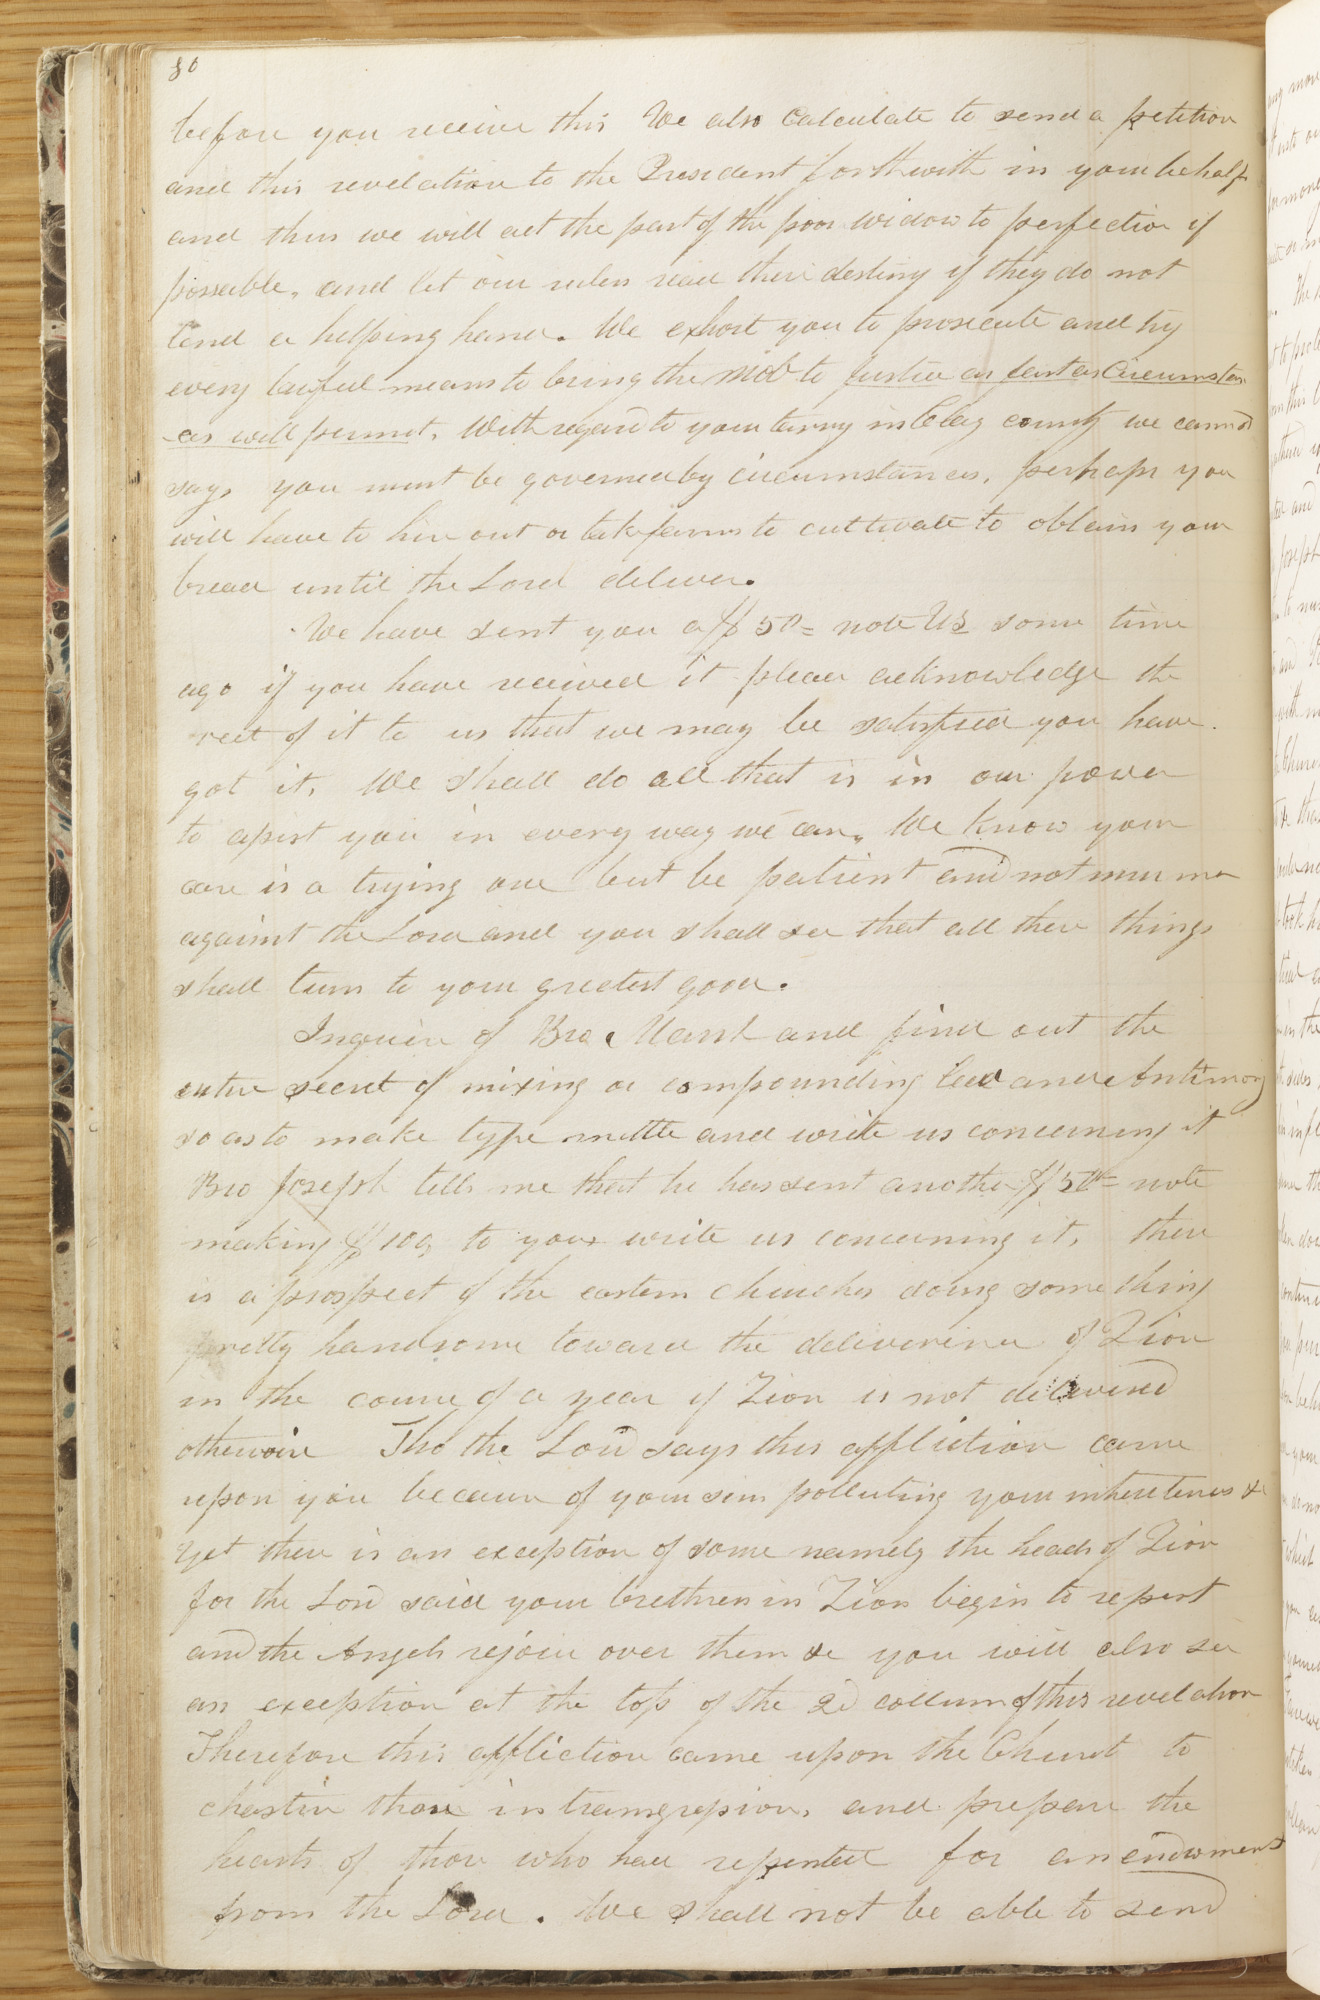 80
before you receive this We also calculate to send a petition
and this revelation to the President forthwith in your behalf
and then we will act the part of the poor widow to perfection if
possable, and let our rulers read their destiny if they do not
lend a helping hand. We exhort you to prosecute and try
every lawful means to bring the mob to justice as fast as circumstan
-ces will permit. With regard to your tarry in Clay county we cannot
say, you must be governed by circumstances, perhaps you
will have to hire out or take farms to cultivate to obtain your
bread until the Lord deliver.
We have sent you a $50= note US some time
ago if you have received it please acknowledge the
rect of it to us that we may be satisfied you have
got it. We shall do all that is in our power
to assist you in every way we can. We know your
case is a trying one but be patient and not murmer
against the Lord and you shall see that all these things
shall turn to your greatest good.
Inquire of Bro. Marsh and find out the
entire secret of mixing or compounding lead and Antimony
so as to make type mettle and write us concerning it
Bro Joseph tells me that he has sent another $50= note
making $100, to you write us concerning it, there
is a prospect of the eastern churches doing something
pretty handsome toward the deliverince of Zion
in the course of a year if Zion is not delivered
otherwise Tho the Lord says this affliction came
upon you because of your sins polluting your inheritences &c
Yet there is an exception of some namely the heads of Zion
for the Lord said your brethren in Zion begin to repent
and the Angels rejoice over them &c you will also see
an exception at the top of the 2d collumn of this revelation
Therefore this affliction came upon the Church to
chasten those in transgression, and prepare the
hearts of those who had repented for an endowment
from the Lord. We shall not be able to send